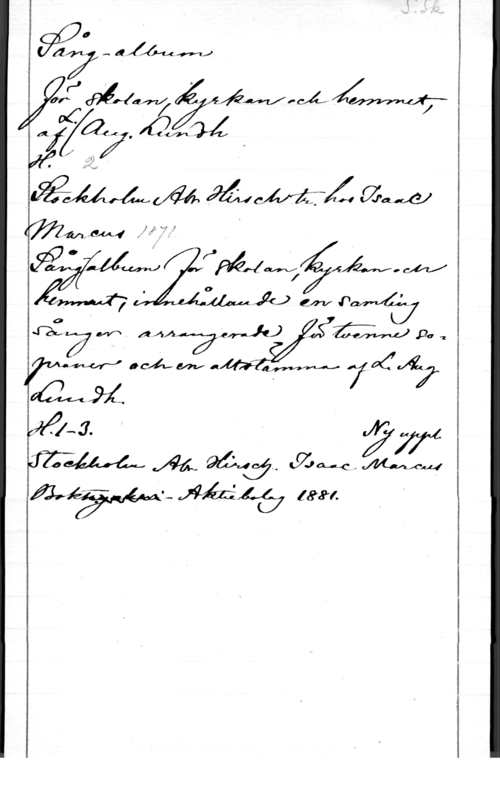 S: Sk
Sång-album
för skolan, kyrkan och hemmet,
af L. Aug. Lundh
H. 2
Stockholm Abr. Hirsch tr. hos Isaac
Marcus 1871
Sångalbum för skolan, kyrkan och
hemmet, innehållande en samling
sånger arrangerade för tvenne so-
praner och en altstämma af L. Aug.
Lundh.
H. 1-3. Ny uppl.
Stockholm Abr. Hirsch. Isaac Marcus
Boktryckeri-Aktiebolag 1881.